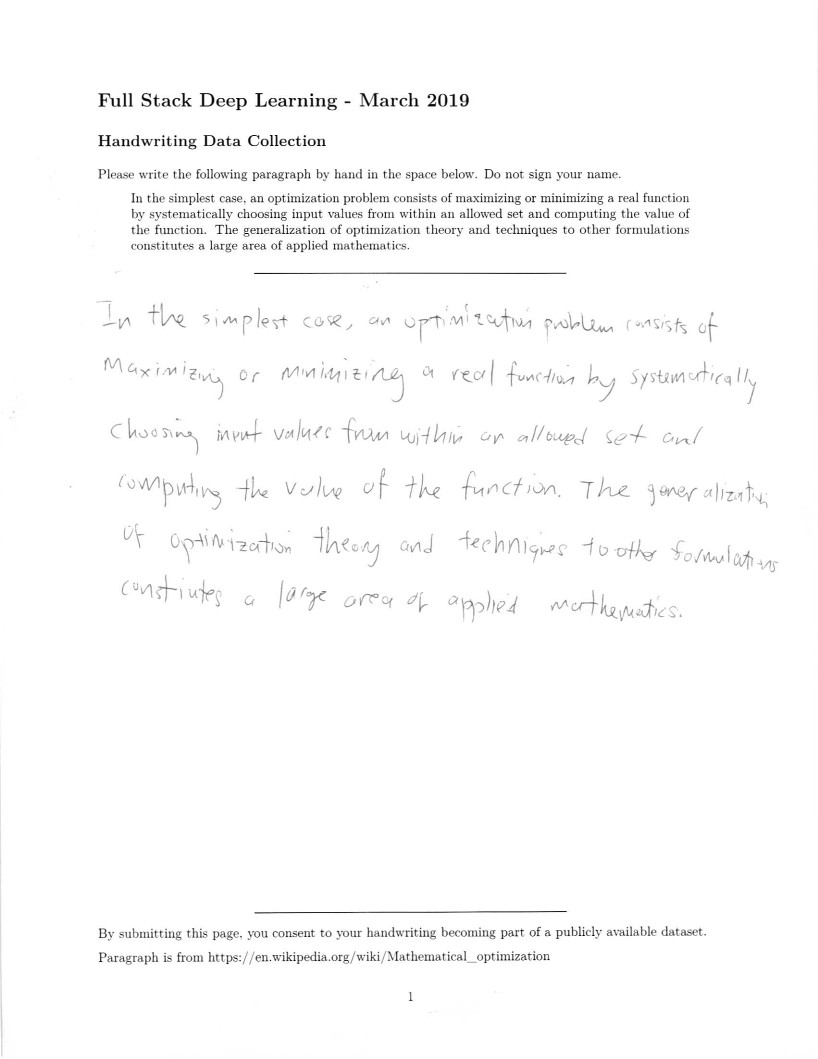 Full Stack Deep Learning - March 2019
Handwriting Data Collection
Please write the following paragraph by hand in the space below. Do not sign your name.
In the simplest case, an optimization problem consists of maximizing or minimizing a real function
by systematically choosing input values from within an allowed set and computing the value of
the function. The generalization of optimization theory and techniques to other formulations
constitutes a large area of applied mathematics.
In the simplest case, an optimization problem consists of
Maximizing or minimizing a real function by systematically
Choosing input values from within an allowed set and
computing the value of the function. The generalization
of optimization theory and techniques to other formulations
constiutes a large area of applied mathematics.
By submitting this page, you consent to your handwriting becoming part of a publicly available dataset.
Paragraph is from https://en.wikipedia.org/wiki/Mathematical_optimization
1